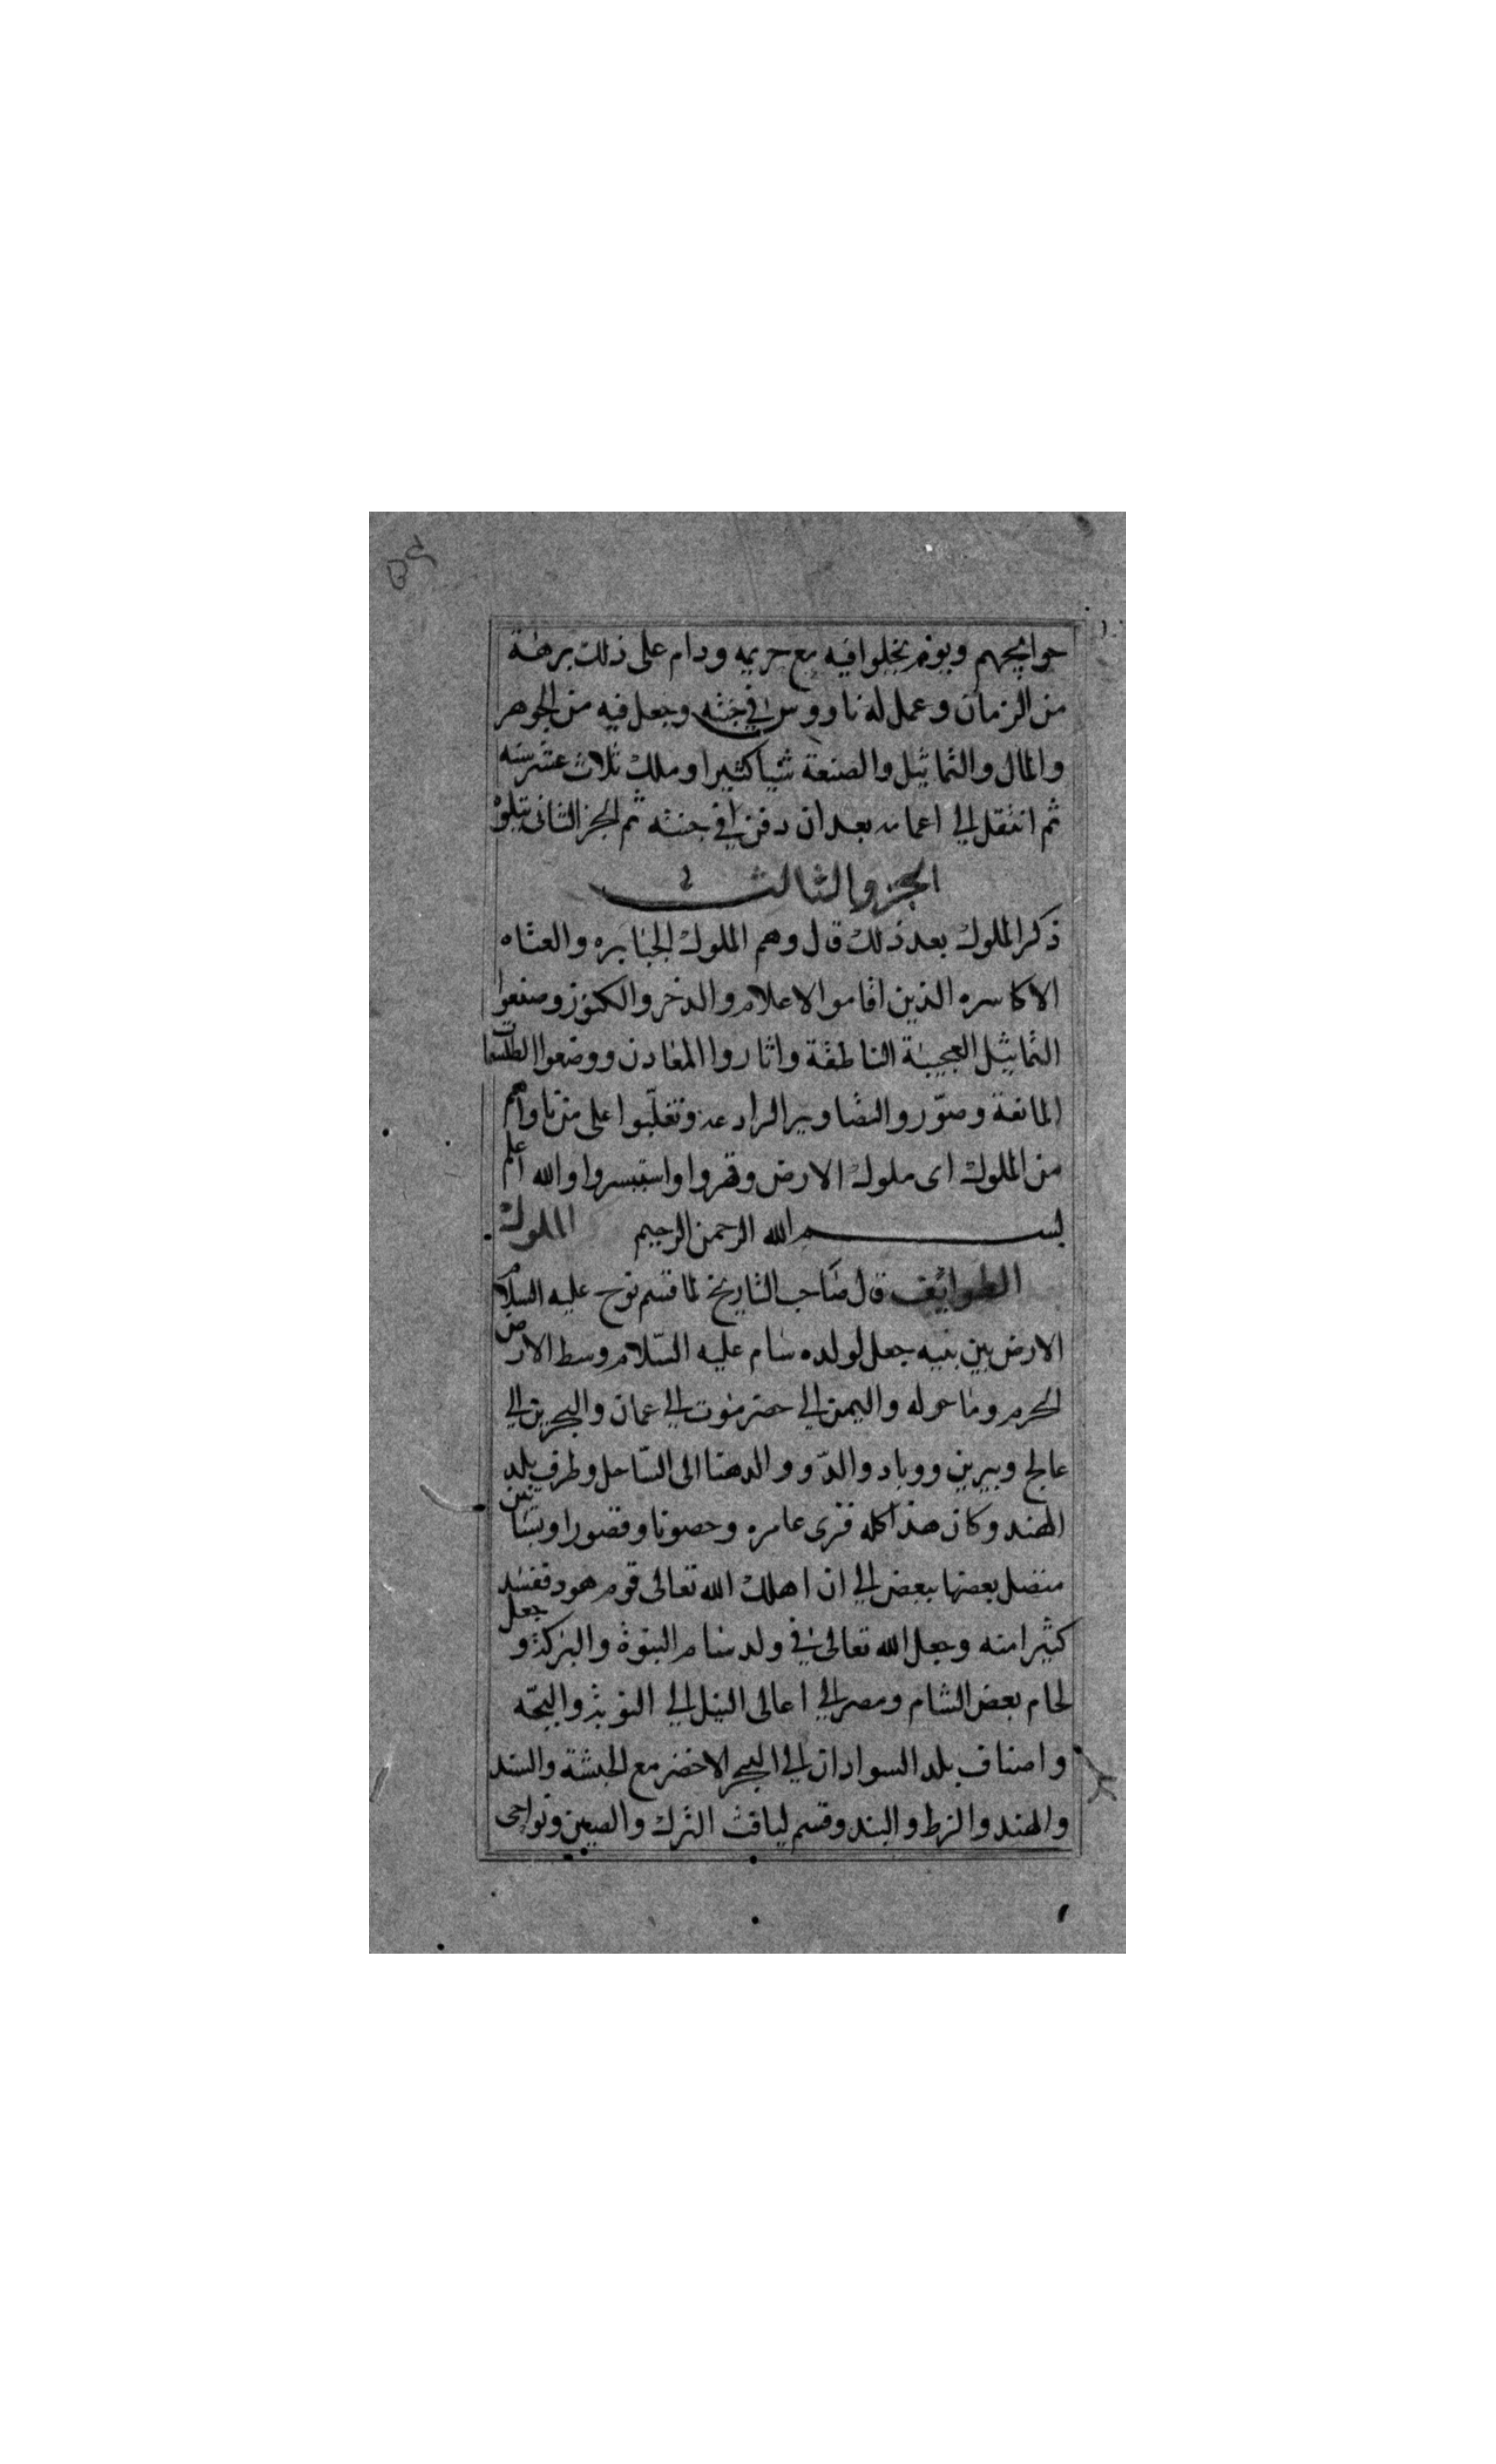 حوايجهم ويوم يخلوا فيه مع حريمه ودام على ذلك برهة
من الزمان وعمل له ناووس في جنته وجعل فيه من الجوهر
والمال والتماثيل والصنعة شيا كثيرا وملك ثلاث عشر سنه
ثم انتقل الي اعماله بعد ان دفن في جنته ثم الجز الثانى يتلوه
الجزو الثالث
ذكر الملوك بعد ذلك قال وهم الملوك الجبابره والعتاه
الاكاسره الذين اقاموا الاعلام والدخر والكنوز وصنعوا
التماثيل العجيبة الناطقة واثاروا المعادن ووضعوا الطلسمات
المانعة وصوّروا التصاوير الرادعة وتغلّبوا على من ناواهم
من الملوك اى ملوك الارض وقهروا واستبسروا والله اعلم
بسم الله الرحمن الرحيم الملوك
الطوايف قال صاحب التاريخ لما قسم نوح عليه السلام
الارض بين بنيه جعل لولده سام عليه السّلام وسط الارض
الحرم وما حوله واليمن الي حضرموت الي عمان والبحرين الي
عالج ويبرين ووبار والدّو والدهنا الى السّاحل وطرف بلد
الهند وكان هذا كله قرى عامره وحصونا وقصورا وبساتين
متصل بعضها ببعض الي ان اهلك الله تعالى قوم هود ففسد
كثيرا منه وجعل الله تعالى في ولد سام النبوة والبركة وجعل
لحام بعض الشام ومصر الي اعالى النيل الي النوبة والبجّه
واصناف بلد السوادان الي البحر الاخضر مع الحبشة والسند
والهند والزط والبند وقسم ليافث الترك والصين ونواحى